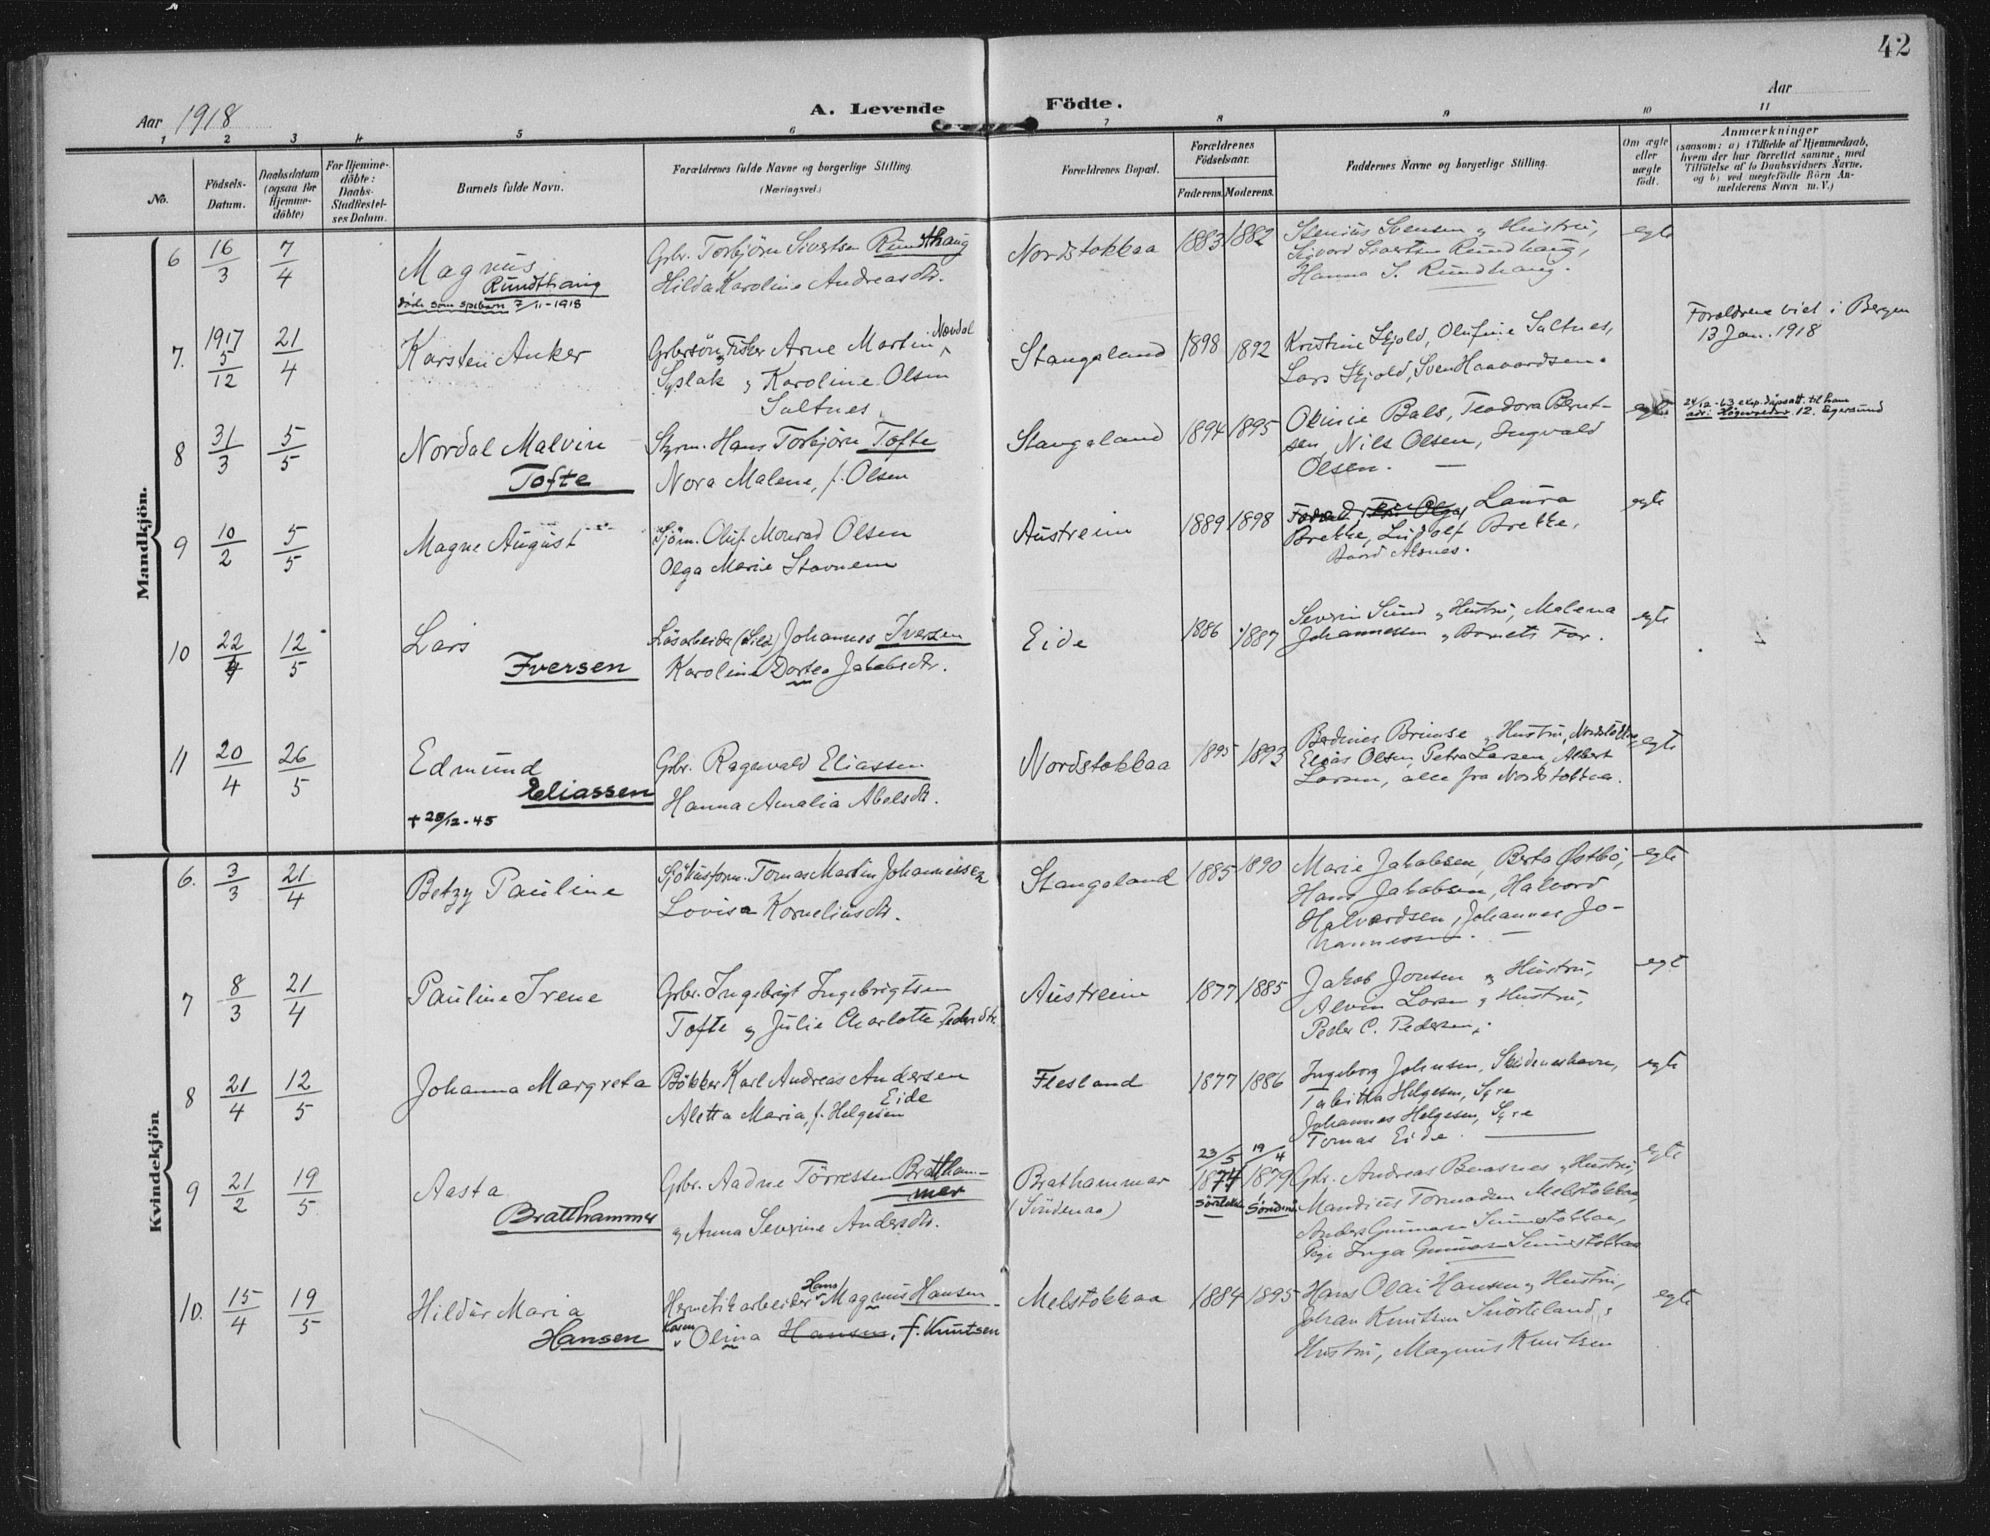 42
Aar 1918
A. Levende Födte.
Aar
1 2 3 4 5 6 7 8 9 10 11
No.
Födsels-
Datum.
Daabsdatum
(ogsaa for
Hjemme-
döbte)
For Hjemme-
döbte:
Daabs-
Stadfæstel-
ses Datum.
Barnets fulde Navn.
Forældrenes fulde Navne og borgerlige Stilling.
(Næringsvei.)
Forældrenes Bopæl.
Forældrenes
Födselsaar.
Faderens. Moderens.
Faddernes Navne og borgerlige Stilling.
Om ægte
eller
uægte
födt.
Anmærkninger
(saasom: a) i Tilfælde af Hjemmedaab,
hvem der har forrettet samme, med
Tilföielse af to Daabsvidners Navne.
og b) ved uægtefödte Börn An-
melderens Navn m. V.)
Mandkjön.
6 16/3 7/4 Magnus
Rundthaug
døde som spebarn 7/11-1918
Gbr. Torbjörn Sivertsen Rundthaug
Hilda Karoline Andreasdtr.
Nordstokkaa 1883 1882
Stenius Svensen og Hustru,
Sivord Sivertsen Rundhaug,
Hanna S. Rundhaug.
egte
7. 1917 5/12 21/4 Karsten Anker
Gbrsön, Fisker Arne Martin Nordal
Syslak og Karoline Olsen
Saltnes.
Stangeland 1898 1892
Kristine Skjold, Olufine Saltnes,
Lars Skjold, Sven Haavardsen.
Foreldrene viet i Bergen
13 Jan. 1918
8 31/3 5/5 Nordal Malvin
Tofte
Styrm. Hans Torbjörn Tofte
Nora Malene, f. Olsen
Stangeland 1894 1895
Olinie Bals, Teodora Bernt-
sen, Nils Olsen, Ingvald
Olsen.
egte
24/12-63 eksp. dåpsatt. til ham
12. Egersund
9 10/2 5/5 Magne August
Sjöm. Oluf Monrad Olsen
Olga Marie Stavnem
Austreim 1889 1898
Laura
Brekke, Ludolf Brekke,
Baard Alsnes.
egte
10 22/4 12/5 Lars
Iversen
Lösarbeider (Sild) Johannes Iversen
Karoline Dortea Jakobsdtr.
Eide 1886 1887
Severin Sund og Hustru, Malena
Johannessen og Barnets Far.
egte
11 20/4 26/5 Edmund
Eliassen
+ 28/12-45
Gbr. Ragnvald Eliassen
Hanna Amalia Abelsdtr.
Nordstokkaa 1895 1893
Berdines Brimse og Hustru, Nordstokkaa,
Elias Olsen, Petra Larsen, Albert
Larsen, alle fra Nordstokkaa.
egte
Kvindekjön
6. 3/3 21/4 Betzy Pauline
Sjöhusform. Tomas Martin Johannessen
Lovisa Korneliusdtr.
Stangeland 1885 1890
Marie Jakobsen, Berta Østbö,
Hans Jakobsen, Halvord
Halvordsen, Johannes Jo-
hannessen.
egte
7 8/3 21/4 Pauline Irene
Gbr. Ingebrigt Ingebrigtsen
Tofte og Julie Charlotte Pedersdtr.
Austreim 1877 1885
Jakob Jonsen og Hustru,
Alvin Larsen og Hustru,
Peder C. Pedersen.
egte
8 21/4 12/5 Johanna Margreta
Bökker Karl Andreas Andersen
Eide
Aletta Maria, f. Helgesen
Flesland 1877 1886
Ingeborg Johnsen, Skudeneshavn,
Tabitha Helgesen, Syre
Johannes Helgesen, Syre
Tomas Eide.
egte
9 21/2 19/5 Aasta
Bratthammer
Gbr. Aadne Törressen Bratham-
mer
og Anna Severine Andersdtr.
Brathammer
(Skudenes)
23/5 19/4
1874 1879
Gbr. Andreas Benasnes og Hustru,
Mandius Tormodsen Melstokkaa,
Anders Gunnarsen Sunnstokkaa,
Pige Inga Gunnarsen Sunnstokkaa
egte
10. 15/4 19/5 Hildur Maria
Hansen
Hermetikarbeider Hans Magnus Hansen
Karen Olina Hansen, f. Knutsen
Melstokkaa 1884 1895
Hans Olai Hansen og Hustru,
Johan Knutsen Snörteland og
Hustru, Magnus Knutsen
egte